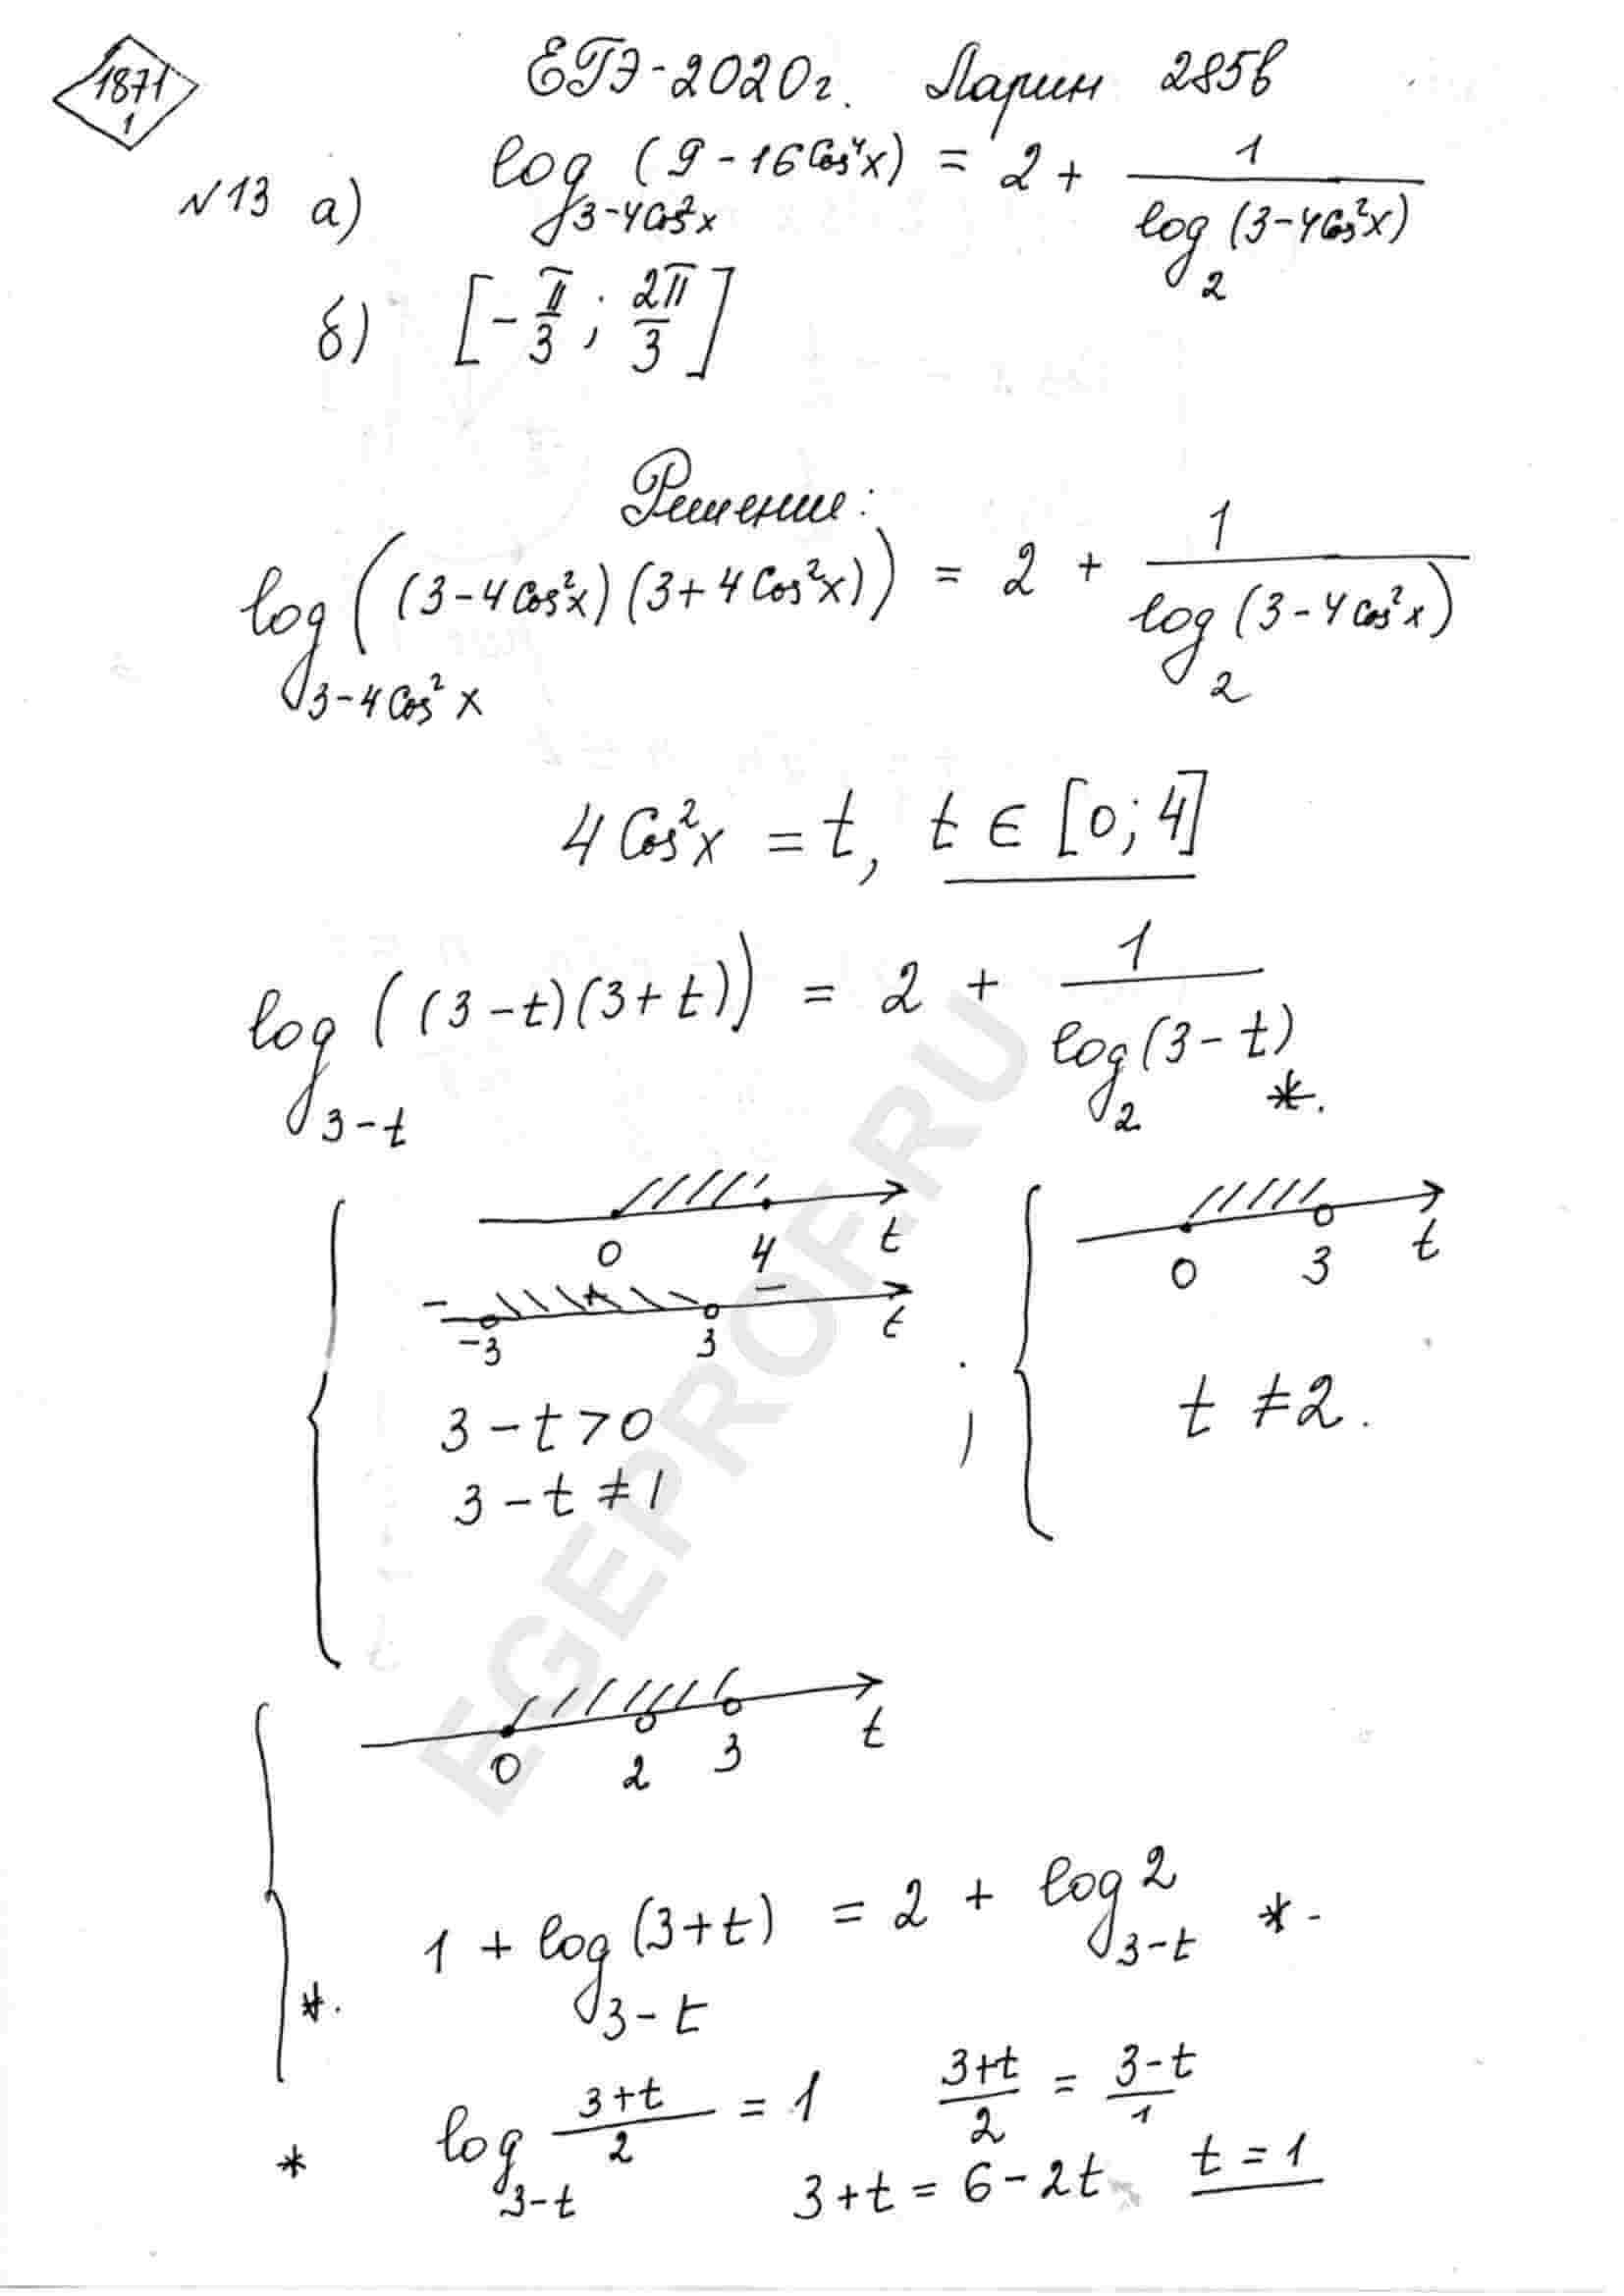 1871
1
ЕГЭ-2020г. Ларин 285в
№13 а) log_{3-4Cos²x} (9-16Cos⁴x) = 2 + 1/(log_2 (3-4Cos²x))
б) [-π/3; 2π/3]
Решение:
log_{3-4Cos²x} ((3-4Cos²x)(3+4Cos²x)) = 2 + 1/(log_2 (3-4Cos²x))
4Cos²x = t, t ∈ [0; 4]
log_{3-t} ((3-t)(3+t)) = 2 + 1/(log_2 (3-t)) *.
0 4 t
- + -
-3 3 t
3-t>0
3-t≠1
;
0 3 t
t≠2.
0 2 3 t
*. 1 + log_{3-t} (3+t) = 2 + log_{3-t} 2 *.
* log_{3-t} (3+t)/2 = 1 (3+t)/2 = (3-t)/1
3+t = 6-2t t = 1
EGEPROF.RU